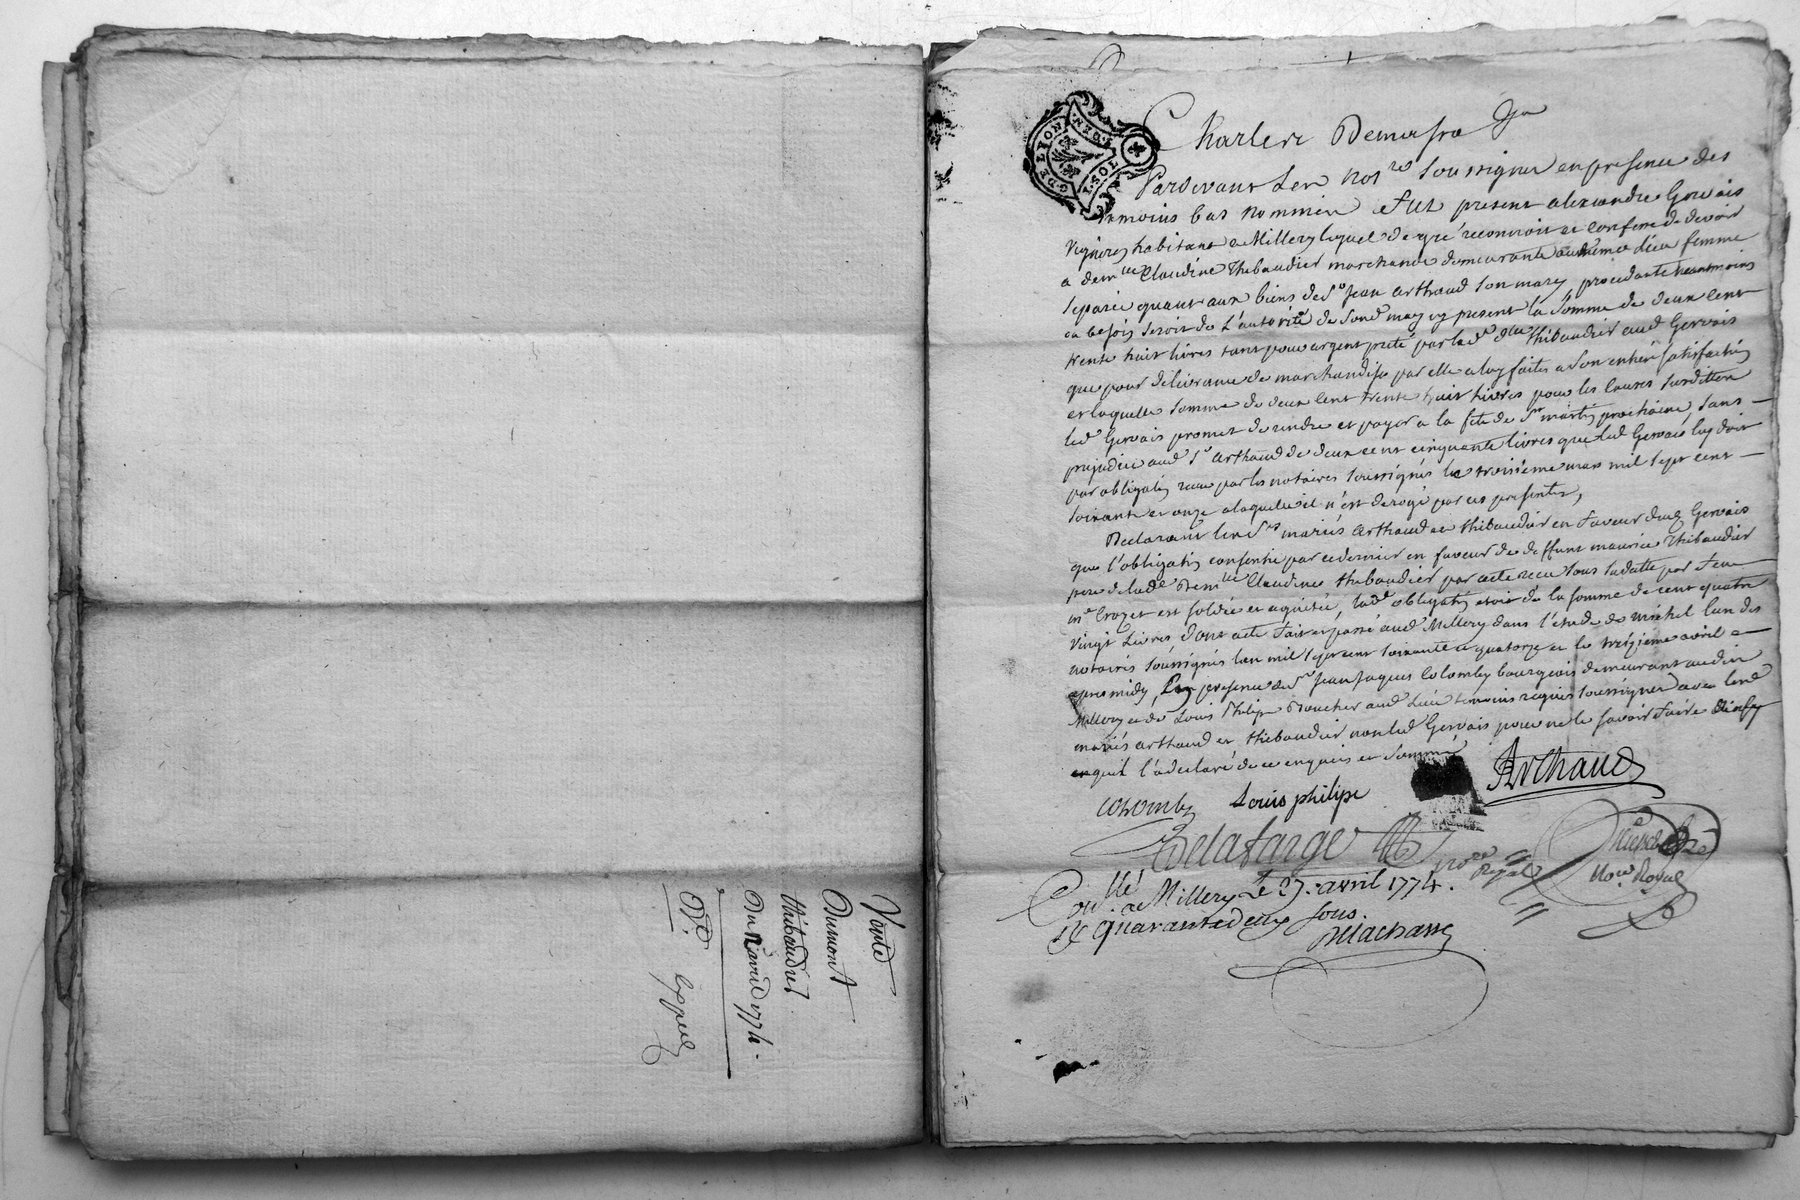 Vente
Dumont
thibaudier
Du avril 1774.
Exped
G. DE LYON
DEN.
1. SOL
Pardevant Les Nores Soussignes en presence des
temoins bas nommés fut present alexandre Gervais
Vigneron habitant a Millery lequel de gré reconnoit et confesse de devoir
a demlle Claudine Thibaudier marchande demeurante audit lieu femme
separée quant aux biens de sr Jean Arthaud son mary, procedante neantmoins
en besoin seroit de L'autorité de sond. mary cy present la somme de deux cent
trente huit livres tant pour argent preté par lad. dlle thibaudier aud Gervais
que pour délivrance de marchandise par elle a luy faites a son entiere satisfaction
et laquelle somme de deux cent trente huit livres pour les causes susdittes
led Gervais promet de rendre et payer a la fete de st martin prochaine, sans
prejudice aud sr Arthaud de deux cent cinquante livres que led Gervais luy doit
par obligation recue par les notaires soussignés le troisieme mars mil sept cent
soixante et onze a laquelle il n'est derogé par ces presentes,
Declarant lesd. srs mariés Arthaud et thibaudier en faveur dud Gervais
que l'obligation consentie par ce dernier en faveur de deffunt maurice Thibaudier
pere de lade Demlle Claudine thibaudier par acte recu sous sa datte par feu
me Crozet est soldée et aquitée, lade obligation etoit de la somme de cent quatre
vingt Livres Dont acte Fait et passé aud Millery dans l'étude de michel l'un des
notaires soussignés l'an mil sept cent soixante et quatorze et le treizieme avril
apres midy, En presence de sr Jean Jaques Colomby bourgeois demeurant audit
Millery et de Louis Philipe Boucher aud. Lieu temoins requis soussignés avec lesd
mariés arthaud et thibaudier non led Gervais pour ne le savoir faire ainsy
qu'il l'a declaré de ce enquis et sommé
Colomby Louis philipe Arthaud
Delafarge
Nore Royal
Nore Royal
Coné a Millery Le 27. avril 1774.
R quarante deux sous.
Delachasse